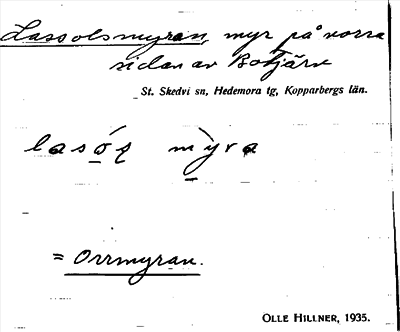 Lassolsmyran, myr på norra
sidan av Botjärn
St. Skedvi sn, Hedemora tg, Kopparbergs län.
myra
= Orrmyran.
OLLE HILLNER, 1935.